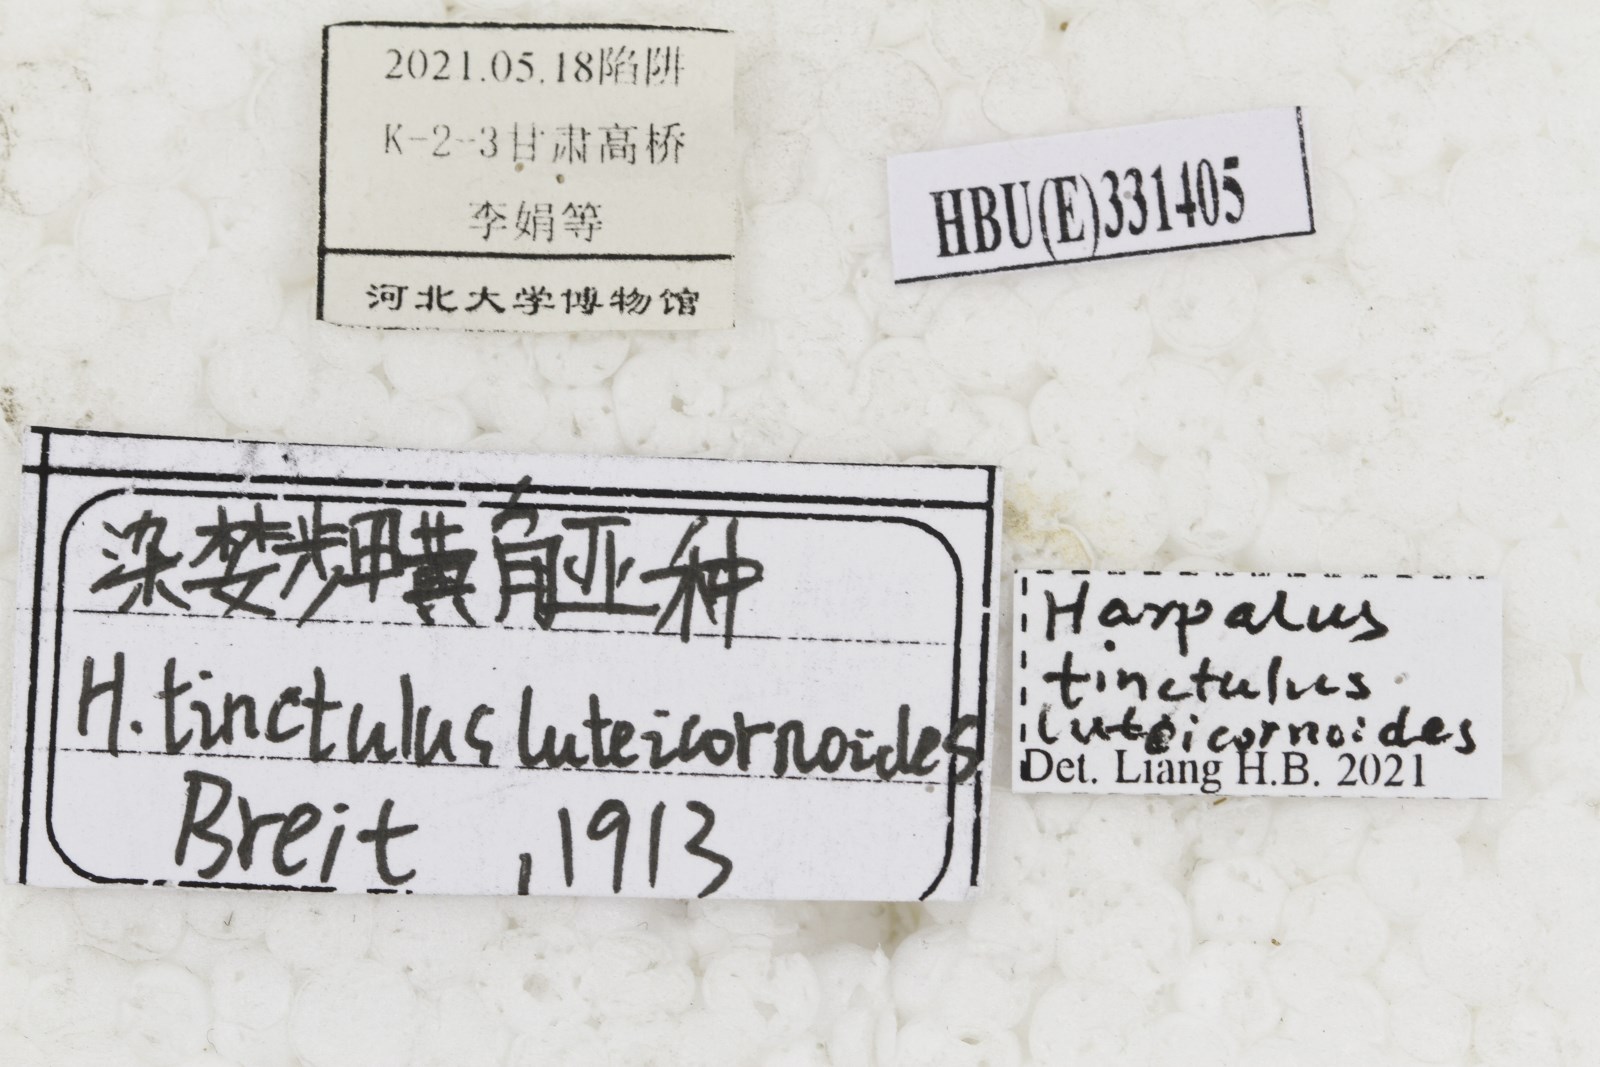 2021.05.18陷阱
K-2-3甘肃高桥
李娟等
河北大学博物馆
HBU(E)331405
染婪步甲黄角亚种
H. tinctulus luteicornoides
Breit ,1913
Harpalus
tinctulus
luteicornoides
Det. Liang H.B. 2021